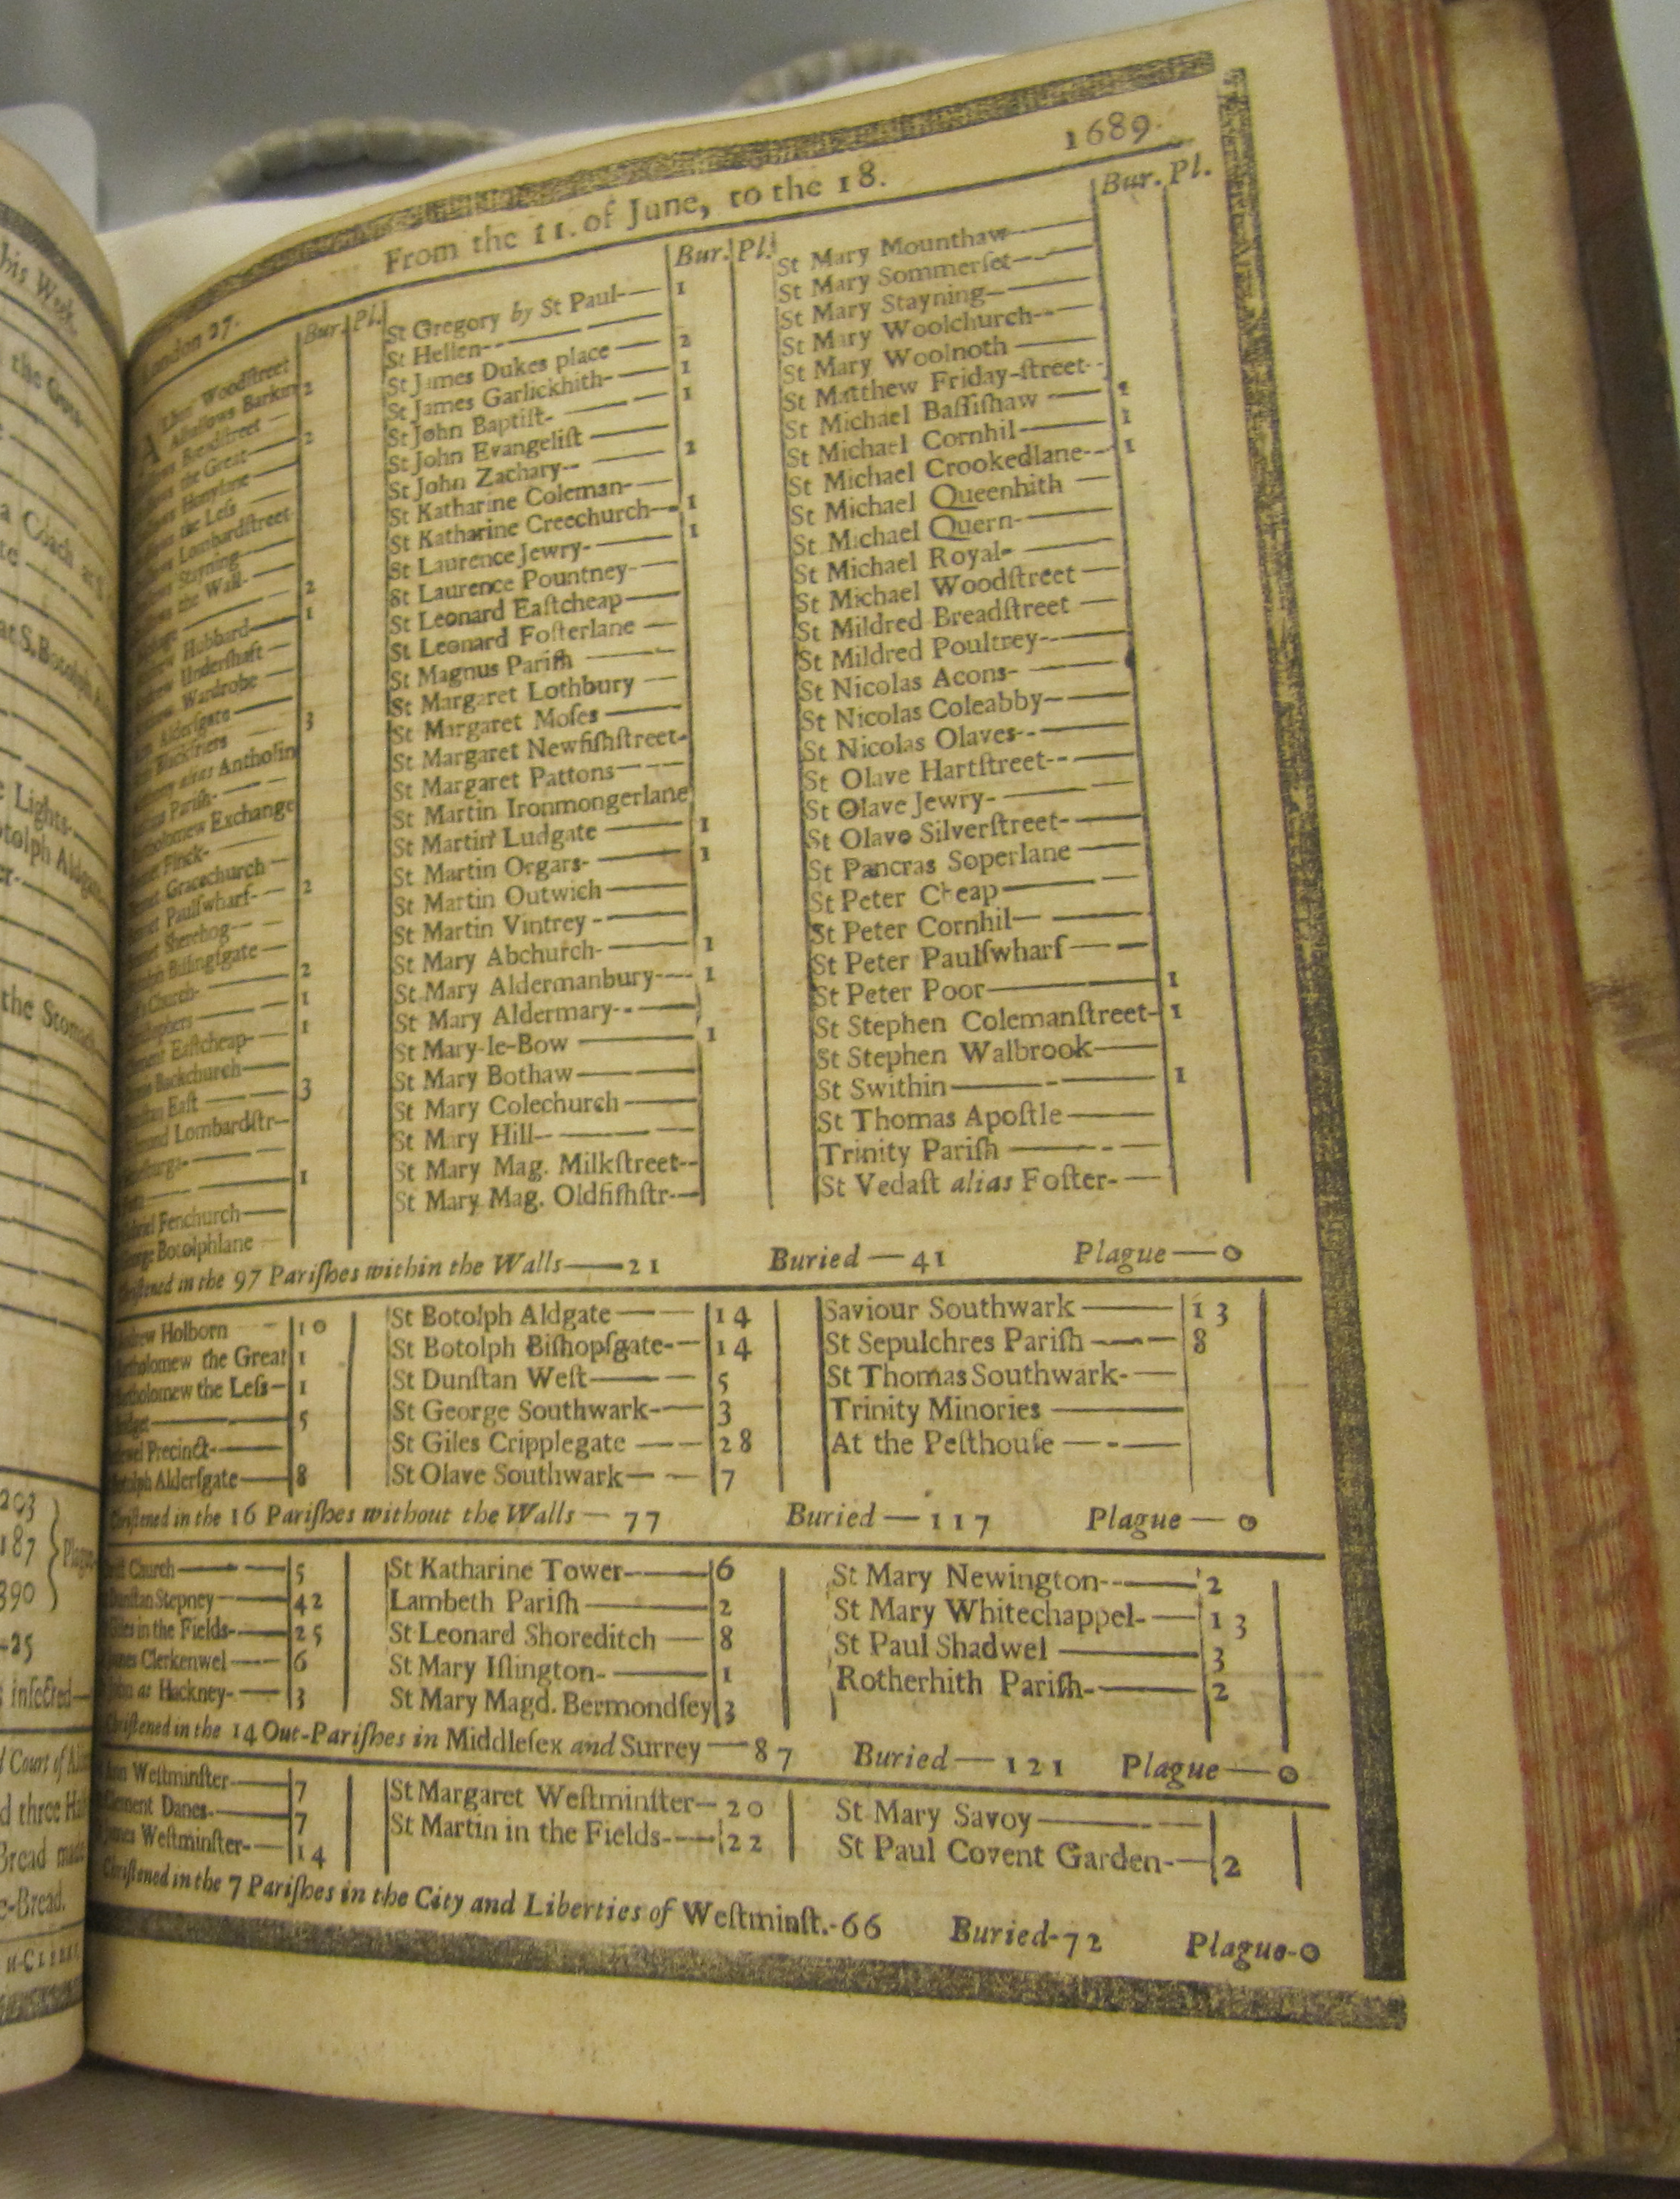 From the 11. of June, to the 18. 1689.
London 27. Bur. Pl.
Woodstreet
Alhallows Barkin 2
Breadſtreet
the Great 2
Honylane
the Leſs
Lombardſtreet
Stayning
the Wall
2
Hubbard 1
Underſhaft
Wardrobe
Alderſgate
Blackfriers 3
alias Antholin
Pariſh
Exchange
Finck
Gracechurch
Paulſwharf 2
Sherehog
Billingſgate
Church 2
1
Eaſtcheap 1
Backchurch
Eaſt 3
Lombardſtr
1
Fenchurch
Botolphlane
Bur. Pl.
St Gregory by St Paul 1
St Hellen
St James Dukes place 2
St James Garlickhith 1
St John Baptiſt 1
St John Evangeliſt
St John Zachary 2
St Katharine Coleman
St Katharine Creechurch 1
St Laurence Jewry 1
St Laurence Pountney
St Leonard Eaſtcheap
St Leonard Foſterlane
St Magnus Pariſh
St Margaret Lothbury
St Margaret Moſes
St Margaret Newfiſhſtreet
St Margaret Pattons
St Martin Ironmongerlane
St Martin Ludgate 1
St Martin Orgars 1
St Martin Outwich
St Martin Vintrey
St Mary Abchurch 1
St Mary Aldermanbury 1
St Mary Aldermary
St Mary-le-Bow 1
St Mary Bothaw
St Mary Colechurch
St Mary Hill
St Mary Mag. Milkſtreet
St Mary Mag. Oldfiſhſtr
Bur. Pl.
St Mary Mounthaw
St Mary Sommerſet
St Mary Stayning
St Mary Woolchurch
St Mary Woolnoth
St Matthew Friday-ſtreet
St Michael Baſſiſhaw 1
St Michael Cornhil 1
St Michael Crookedlane 1
St Michael Queenhith
St Michael Quern
St Michael Royal
St Michael Woodſtreet
St Mildred Breadſtreet
St Mildred Poultrey
St Nicolas Acons
St Nicolas Coleabby
St Nicolas Olaves
St Olave Hartſtreet
St Olave Jewry
St Olave Silverſtreet
St Pancras Soperlane
St Peter Cheap
St Peter Cornhil
St Peter Paulſwharf
St Peter Poor 1
St Stephen Colemanſtreet 1
St Stephen Walbrook
St Swithin 1
St Thomas Apoſtle
Trinity Pariſh
St Vedaſt alias Foſter
in the 97 Pariſhes within the Walls—21 Buried—41 Plague—0
Holborn 10
the Great 1
the Leſs 1
5
Precinct
Alderſgate 8
St Botolph Aldgate 14
St Botolph Biſhopſgate 14
St Dunſtan Weſt 5
St George Southwark 3
St Giles Cripplegate 28
St Olave Southwark 7
Saviour Southwark 13
St Sepulchres Pariſh 8
St Thomas Southwark
Trinity Minories
At the Peſthouſe
in the 16 Pariſhes without the Walls—77 Buried—117 Plague—0
Church 5
Stepney 42
in the Fields 25
Clerkenwel 6
at Hackney 3
St Katharine Tower 6
Lambeth Pariſh 2
St Leonard Shoreditch 8
St Mary Iſlington 1
St Mary Magd. Bermondſey 3
St Mary Newington 2
St Mary Whitechappel 13
St Paul Shadwel 3
Rotherhith Pariſh 2
in the 14 Out-Pariſhes in Middleſex and Surrey—87 Buried—121 Plague—0
Weſtminſter 7
Danes 7
Weſtminſter 14
St Margaret Weſtminſter 20
St Martin in the Fields 22
St Mary Savoy
St Paul Covent Garden 2
Chriſtened in the 7 Pariſhes in the City and Liberties of Weſtminſt.-66 Buried-72 Plague-0